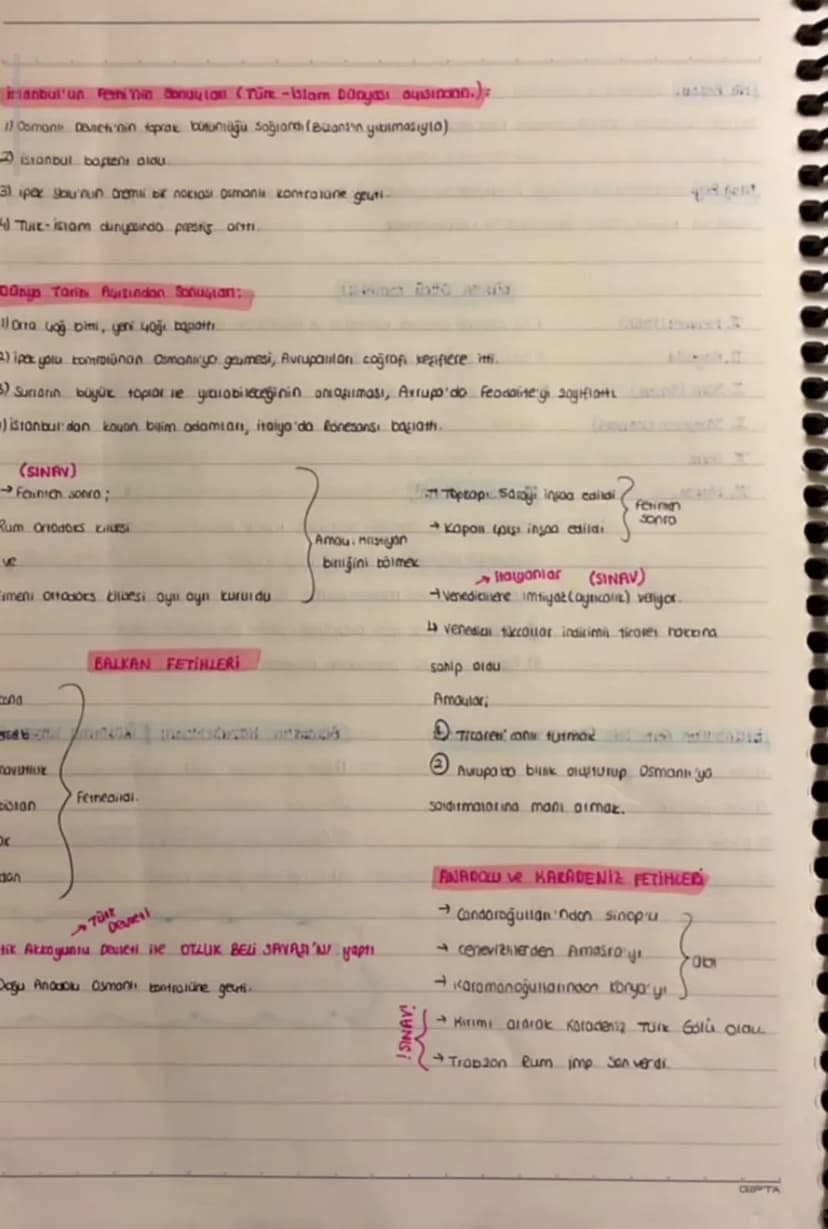 İstanbul'un Fethi'nin Sonuçları (Türk-İslam Dünyası açısından.):
1) Osmanlı Devleti'nin toprak bütünlüğü sağlandı (Bizans'ın yıkılmasıyla)
2) İstanbul başkent oldu.
3) İpek Yolu'nun önemli bir noktası Osmanlı kontrolüne geçti.
4) Türk-İslam dünyasında prestij arttı.
Dünya Tarihi Açısından Sonuçları:
1) Orta çağ bitti, yeni çağı başlattı
2) İpek yolu kontrolünün Osmanlı'ya geçmesi, Avrupalıları coğrafi keşiflere itti.
3) Surların büyük toplar ile yıkılabileceğinin anlaşılması, Avrupa'da Feodalite'yi zayıflattı
) İstanbul'dan kaçan bilim adamları, İtalya'da Rönesansı başlattı.
(SINAV)
→ Fetihten sonra;
Rum Ortodoks kilisesi
ve
Ermeni Ortodoks kilisesi ayrı ayrı kuruldu
Amaç: Hristiyan
birliğini bölmek
→ Topkapı Sarayı inşaa edildi
→ Kapalı çarşı inşaa edildi
Fetihten
sonra
→ İtalyanlar (SINAV)
→ Venediklilere imtiyaz (ayrıcalık) veriyor.
↳ Venedikli tüccarlar indirimli ticaret hakkına
sahip oldu
Amaçlar;
① Ticareti canlı tutmak
② Avrupa'da birlik oluşturup Osmanlı'ya
saldırmalarına mani olmak.
BALKAN FETİHLERİ
Fethedildi.
→ Türk
Devleti
Akkoyunlu Devleti ile OTLUK BELİ SAVAŞI'NI yaptı
Doğu Anadolu Osmanlı kontrolüne geçti.
ANADOLU ve KARADENİZ FETİHLERİ
→ Candaroğulları'ndan Sinop'u
→ Cenevizlilerden Amasra'yı
→ Karamanoğullarından Konya'yı
aldı
! SINAV!
→ Kırımı alarak Karadeniz Türk Gölü oldu
→ Trabzon Rum imp son verdi.